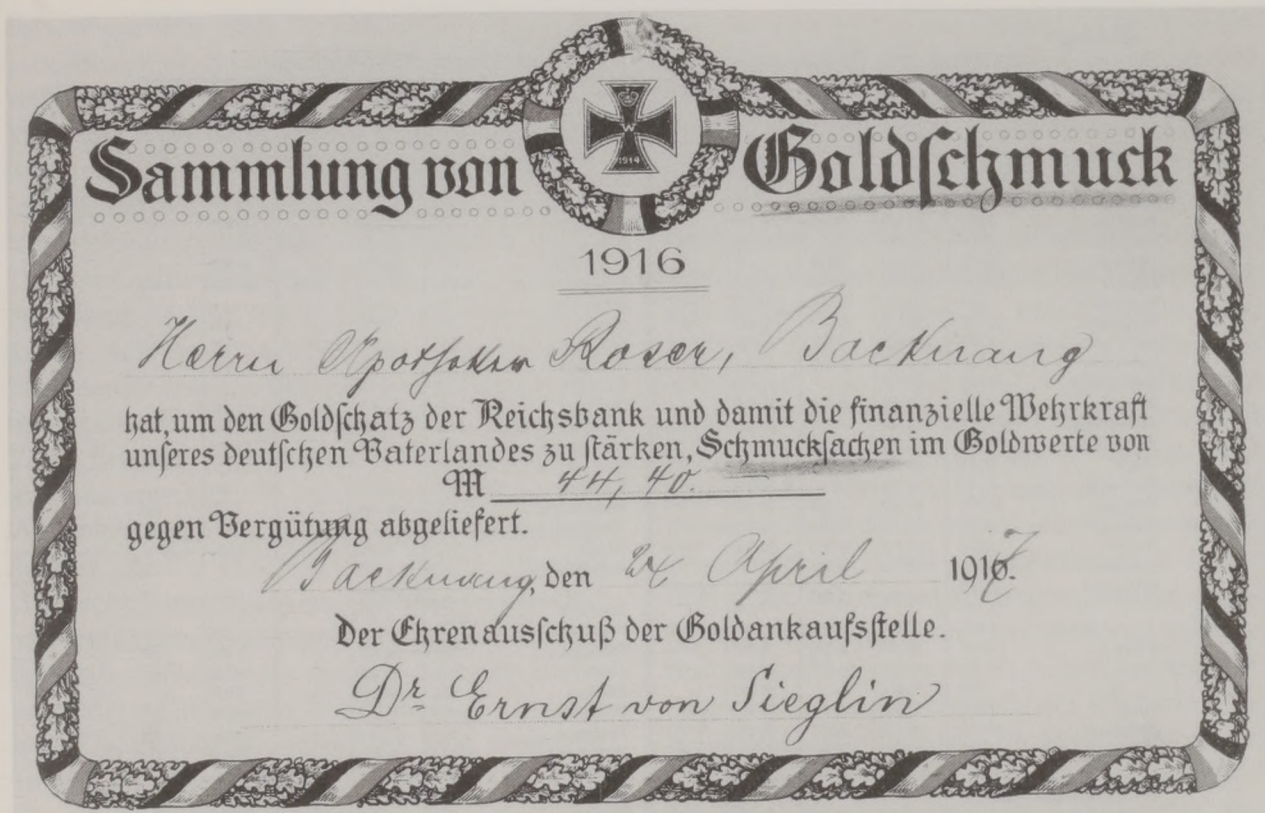 Sammlung von Goldschmuck
W
1914
1916
Herrn Apotheker Roser, Backnang
hat, um den Goldschatz der Reichsbank und damit die finanzielle Wehrkraft
unseres deutschen Vaterlandes zu stärken, Schmucksachen im Goldwerte von
M 44,40.
gegen Vergütung abgeliefert.
Backnang, den 24 April 1917.
Der Ehrenausschuß der Goldankaufsstelle.
Dr. Ernst von Sieglin